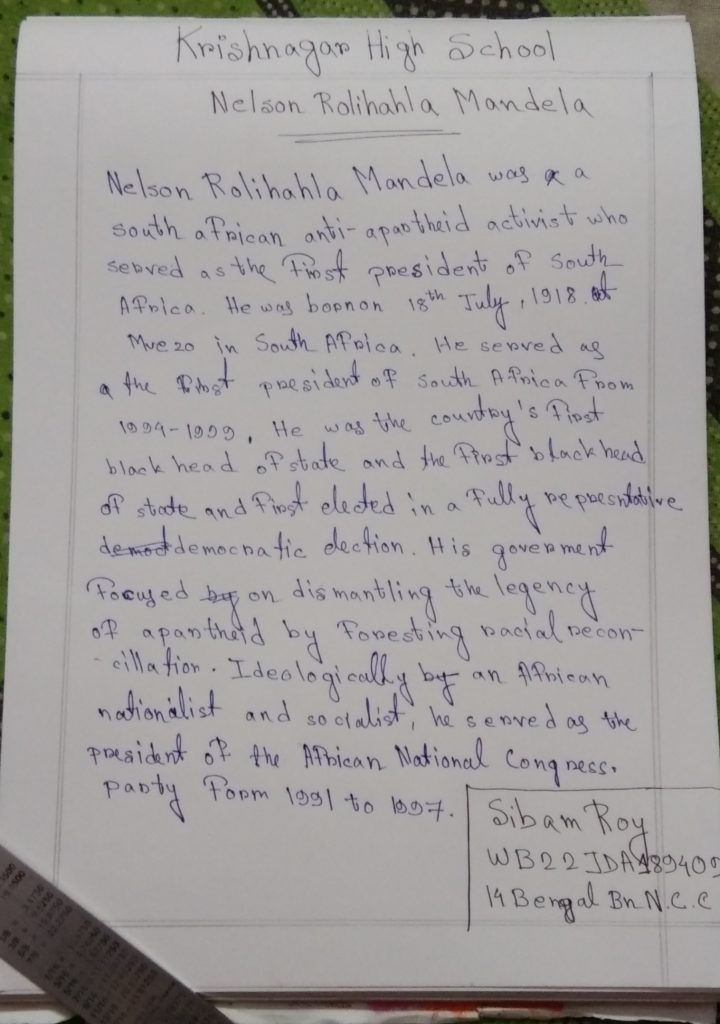 Krishnagar High School
Nelson Rolihahla Mandela
Nelson Rolihahla Mandela was a
south african anti-apartheid activist who
served as the First president of South
Africa. He was born on 18th July, 1918. at
Mvezo in South Africa. He served as
the first president of South Africa From
1994-1999. He was the country's First
black head of state and the First black head
of state and First elected in a Fully represntative
democratic election. His goverment
Focused on dismantling the legency
of apartheid by Foresting racial recon-
-cillation. Ideologically by an African
nationalist and socialist, he served as the
president of the African National Congress.
party Form 1991 to 1997.
Sibam Roy
WB22JDA189409
14 Bengal Bn N.C.C